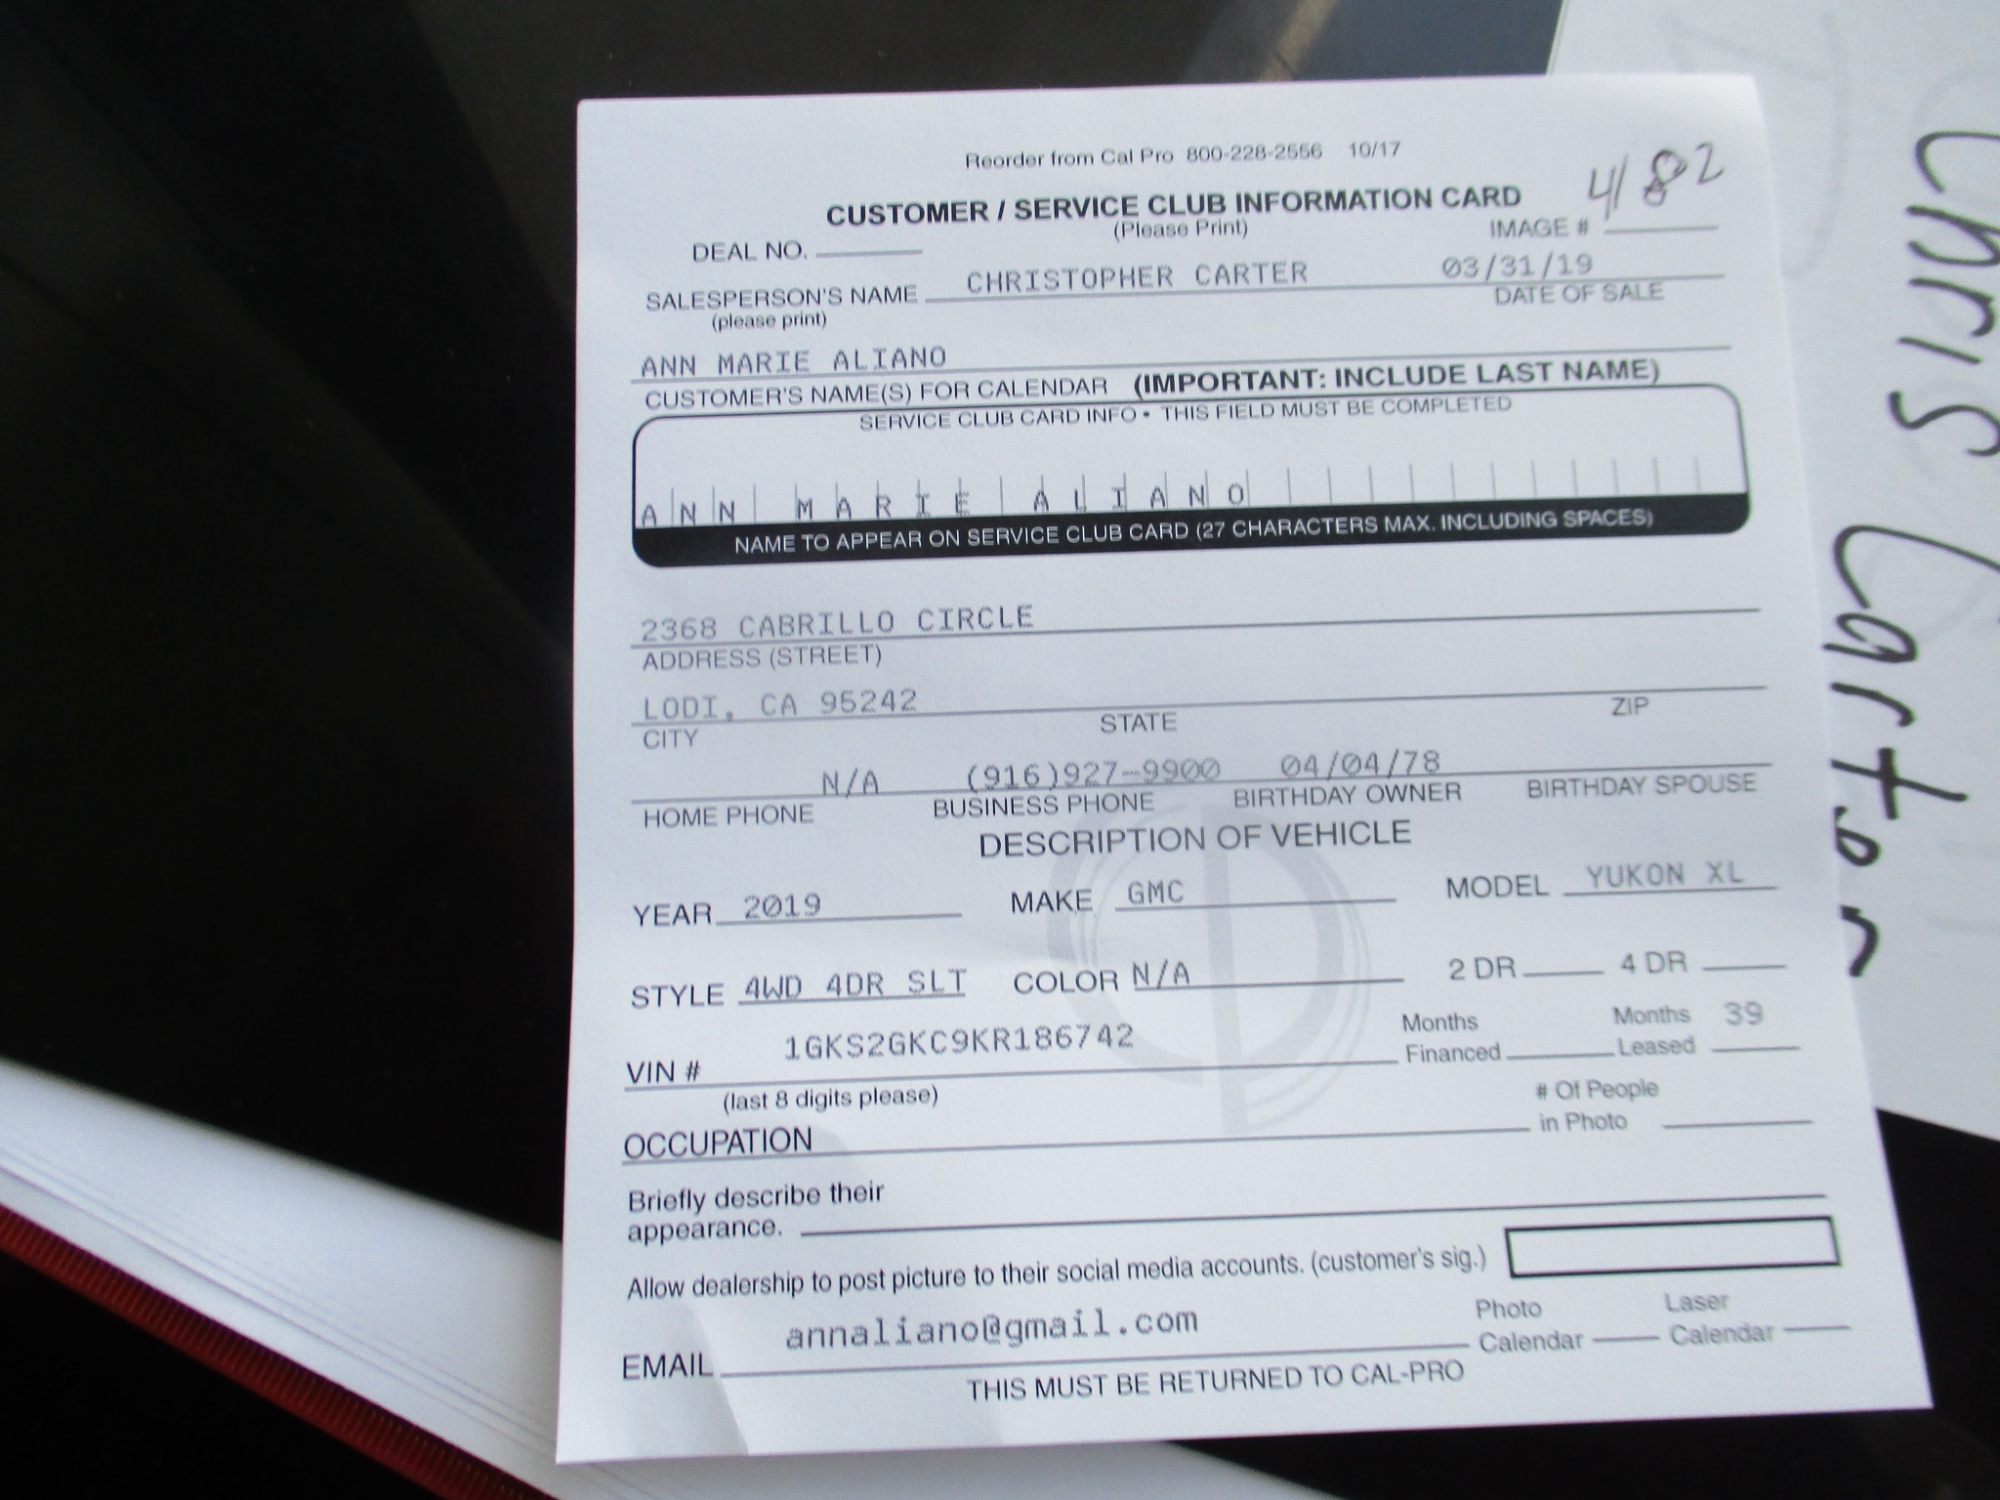 Reorder from Cal Pro 800-228-2556 10/17
CUSTOMER / SERVICE CLUB INFORMATION CARD
(Please Print)
DEAL NO.
IMAGE # 4182
SALESPERSON'S NAME CHRISTOPHER CARTER 03/31/19
(please print)
DATE OF SALE
ANN MARIE ALIANO
CUSTOMER'S NAME(S) FOR CALENDAR (IMPORTANT: INCLUDE LAST NAME)
SERVICE CLUB CARD INFO • THIS FIELD MUST BE COMPLETED
ANN MARIE ALIANO
NAME TO APPEAR ON SERVICE CLUB CARD (27 CHARACTERS MAX. INCLUDING SPACES)
2368 CABRILLO CIRCLE
ADDRESS (STREET)
LODI, CA 95242
CITY STATE ZIP
N/A (916)927-9900 04/04/78
HOME PHONE BUSINESS PHONE BIRTHDAY OWNER BIRTHDAY SPOUSE
DESCRIPTION OF VEHICLE
YEAR 2019 MAKE GMC MODEL YUKON XL
STYLE 4WD 4DR SLT COLOR N/A 2 DR 4 DR
VIN # 1GKS2GKC9KR186742 Months Financed Months Leased 39
(last 8 digits please)
# Of People in Photo
OCCUPATION
Briefly describe their
appearance.
Allow dealership to post picture to their social media accounts. (customer's sig.)
EMAIL annaliano@gmail.com Photo Calendar Laser Calendar
THIS MUST BE RETURNED TO CAL-PRO
Chris Carter